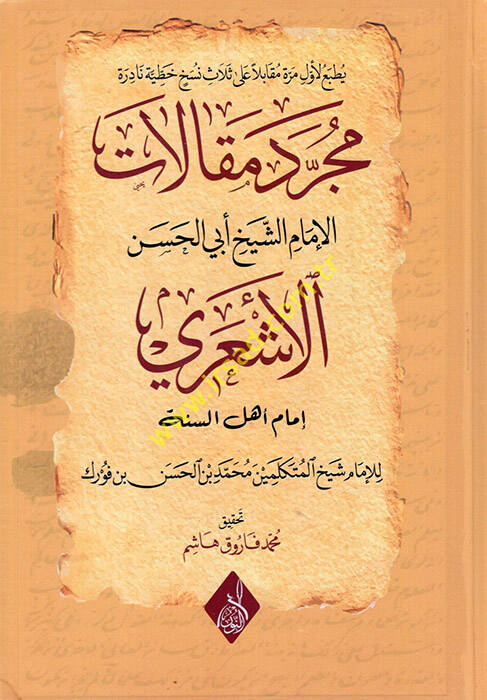 يُطبَعُ لأوَّلِ مَرَّة مُقابَلاً عَلَى ثَلَاثِ نُسَخٍ خَطِّيَّةٍ نَادِرَة
مُجَرَّد مَقَالَات
الإمَامِ الشَّيْخِ أَبِي الحَسَن
الأَشْعَرِي
إمام أهل السنة
لِلإمَام شَيْخِ المُتَكَلِّمِينْ مُحَمَّد بْنِ الْحَسَن بن فُورَك
تَحقِيق
مُحَمَّد فَارُوق هَاشِم
النور